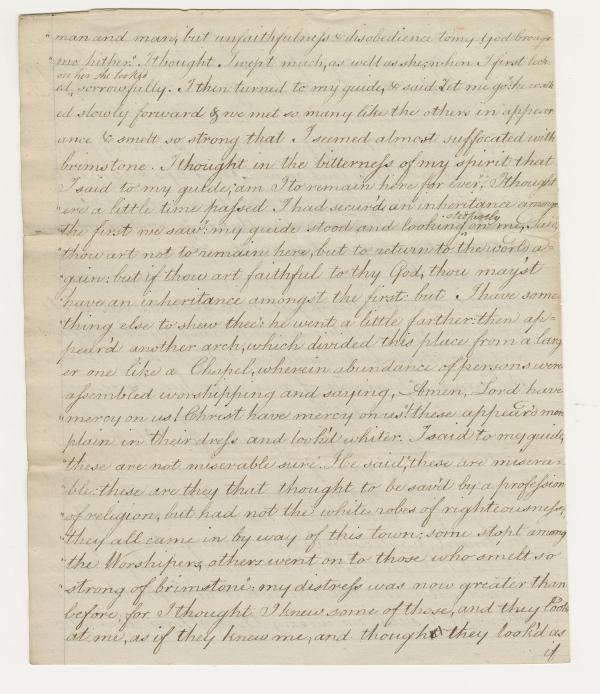 "man and man, but unfaithfulness & disobedience to my God brough
"me hither." I thought I wept much, as well as she: when I first look
on her she looked
"ed, sorrowfully. I then turned to my guide, & said "Let me go": he walk
ed slowly forward & we met so many like the others in appear
ance & smelt so strong that I seemed almost suffocated with
brimstone. I thought in the bitterness of my spirit that
I said to my guide, "am I to remain here for ever", I thought
ere a little time passed I had secur'd an inheritance among
the first we saw": my guide stood and looking on me, said,
"thou art not to remain here, but to return to the world a=
"gain: but if thou art faithful to thy God, thou may'st
"have an inheritance amongst the first: but I have some
"thing else to shew thee": he went a little farther: then ap=
"pear'd another arch, which divided this place from a larg
"er one like a Chapel, wherein abundance of persons were
"assembled worshipping and saying, "Amen, Lord have
"mercy on us! Christ have mercy on us!" these appear'd more
"plain in their dress and look'd whiter. I said to my guide,
"these are not miserable sure". He said, "these are misera-
"ble: these are they that thought to be sav'd by a profession
"of religion, but had not the white robes of righteousness;
"they all came in by way of this town; some stopt among
"the Worshipers, others went on to those who smelt so
"strong of brimstone": my distress was now greater than
"before, for I thought I knew some of those, and they look'd
"at me, as if they knew me, and thought they look'd as
if